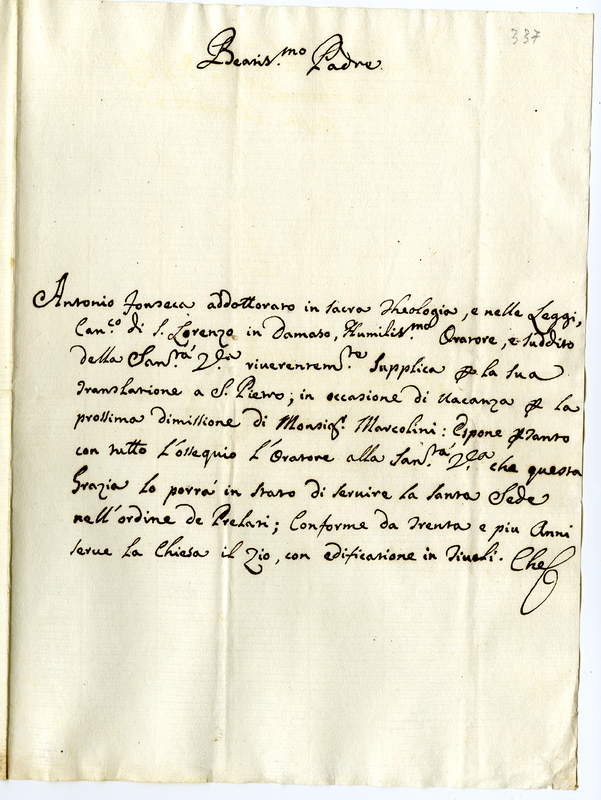 337
Beatis.mo Padre.
Antonio Fonseca addottorato in sacra Theologia, e nelle Leggi,
Can.co di S. Lorenzo in Damaso, Humilis.mo Oratore, e suddito
della San.tà V.ra riverentem.te supplica p la sua
Translatione a S. Pietro; in occasione di vacanza p la
prossima dimissione di Monsig.r Marcolini: Espone ptanto
con tutto l'ossequio l'Oratore alla San.tà V.ra che questa
Grazia lo porrà in stato di servire la Santa Sede
nell'ordine de Prelati; Conforme da trenta e piu Anni
serve la Chiesa il Zio, con edificatione in Tivoli. Che